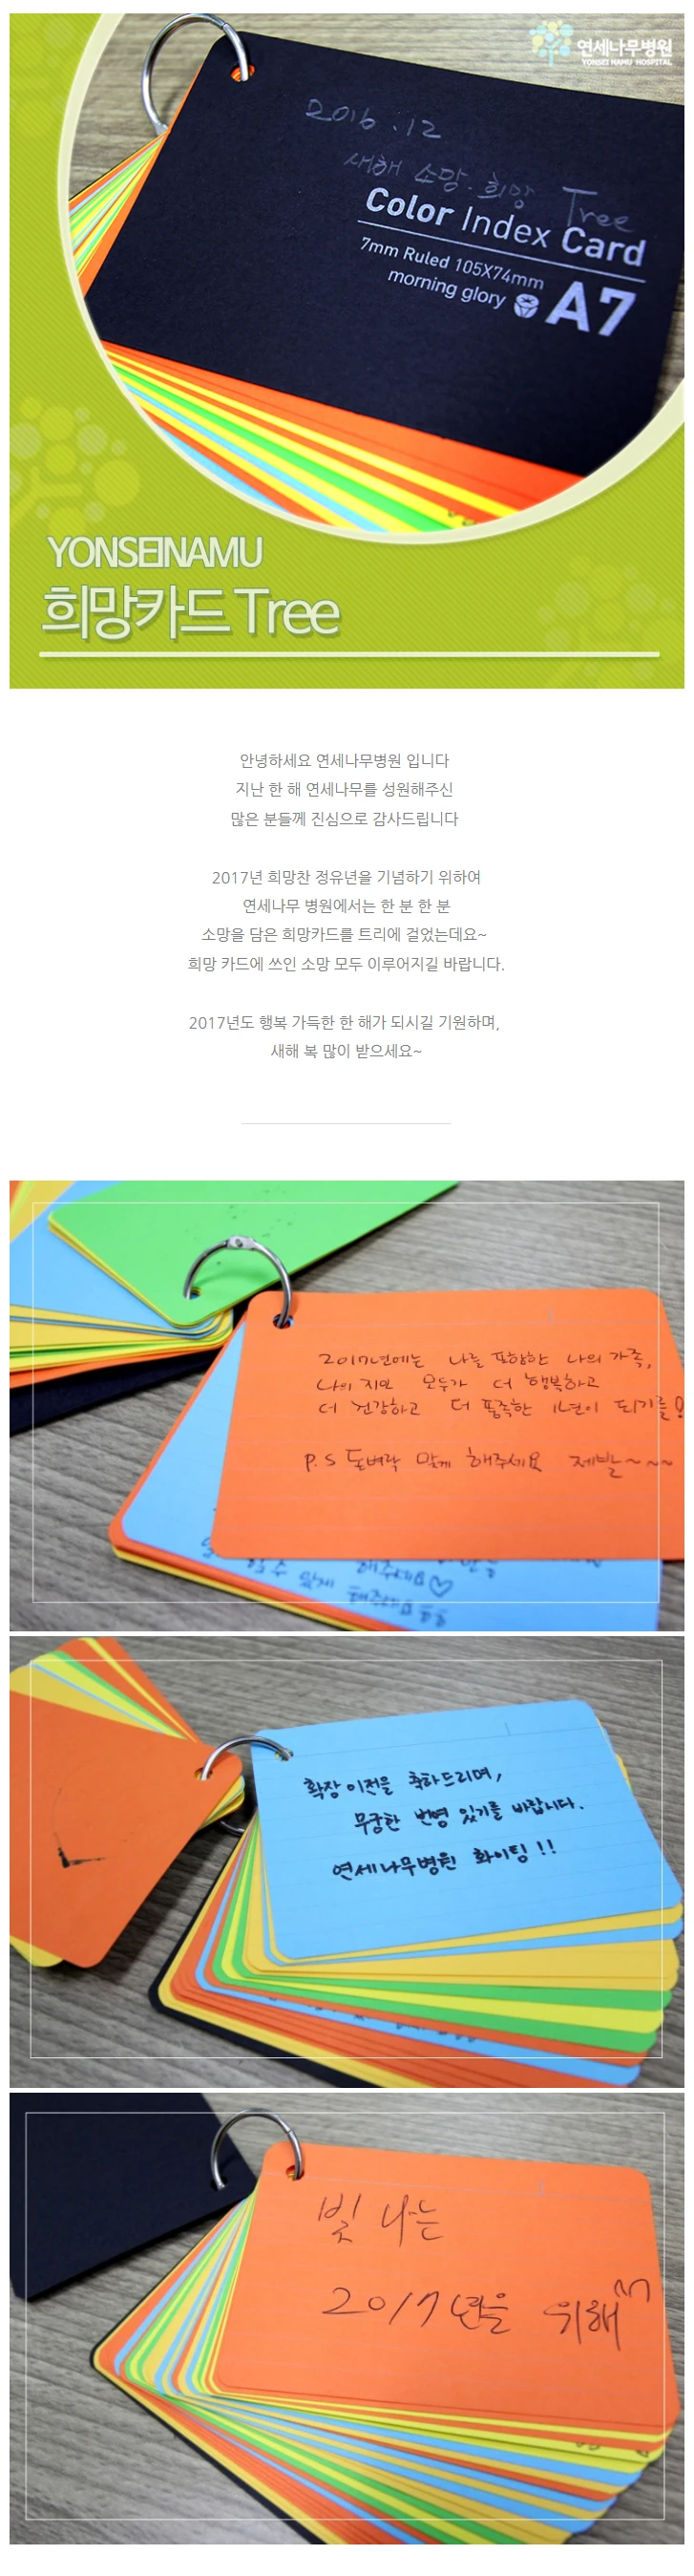 연세나무병원
YONSEI NAMU HOSPITAL
2016 .12
새해 소망.희망 Tree
Color Index Card
7mm Ruled 105X74mm
morning glory A7
YONSEINAMU
희망카드 Tree
안녕하세요 연세나무병원 입니다
지난 한 해 연세나무를 성원해주신
많은 분들께 진심으로 감사드립니다
2017년 희망찬 정유년을 기념하기 위하여
연세나무 병원에서는 한 분 한 분
소망을 담은 희망카드를 트리에 걸었는데요~
희망 카드에 쓰인 소망 모두 이루어지길 바랍니다.
2017년도 행복 가득한 한 해가 되시길 기원하며,
새해 복 많이 받으세요~
2017년에는 나를 포함한 나의 가족,
나의 지인 모두가 더 행복하고
더 건강하고 더 풍족한 1년이 되기를!
P.S 돈벼락 맞게 해주세요 제발~~~
해주세요♡
맞게 해주세요
확장 이전을 축하드리며,
무궁한 번영 있기를 바랍니다.
연세나무병원 화이팅!!
빛나는
2017년을 위해